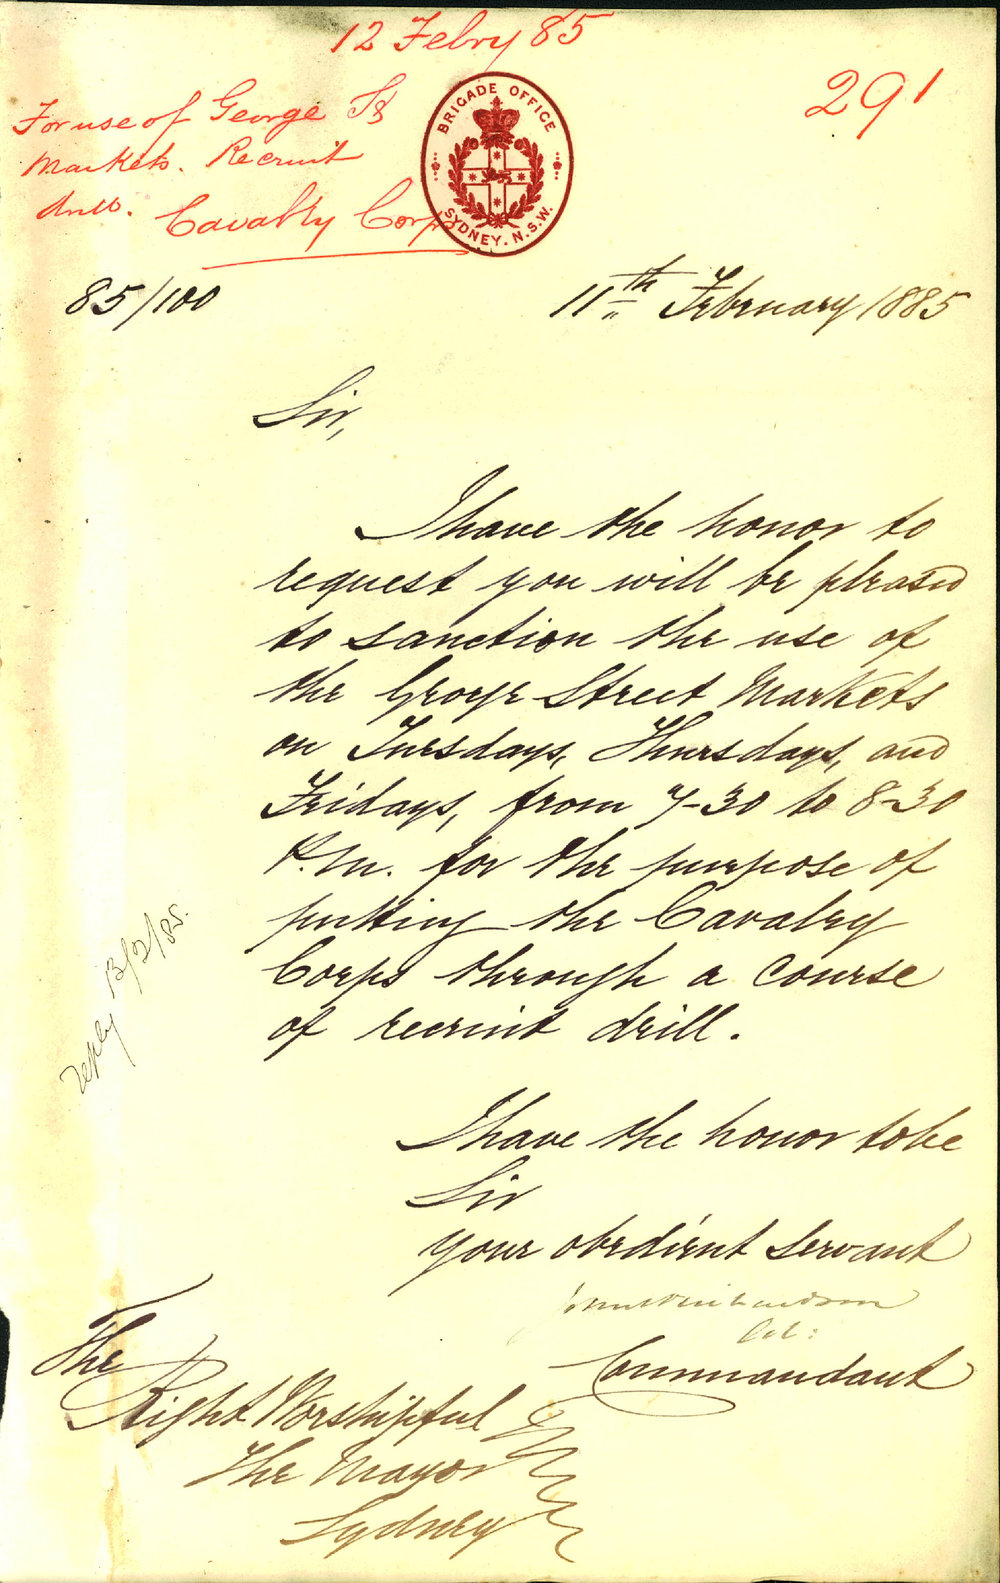 12 Febry 85
291
For use of George St
Markets. Recruit
drill.
Cavalry Corps
BRIGADE OFFICE
SYDNEY. N.S.W.
85/100
11th February 1885
Sir,
I have the honor to
request you will be pleased
to sanction the use of
the George Street Markets
on Tuesdays, Thursdays, and
Fridays, from 7-30 to 8-30
P.M. for the purpose of
putting the Cavalry
Corps through a course
of recruit drill.
reply 13/2/85.
I have the honor to be
Sir
your obedient servant
Richardson
Col:
Commandant
The
Right Worshipful
The Mayor
Sydney